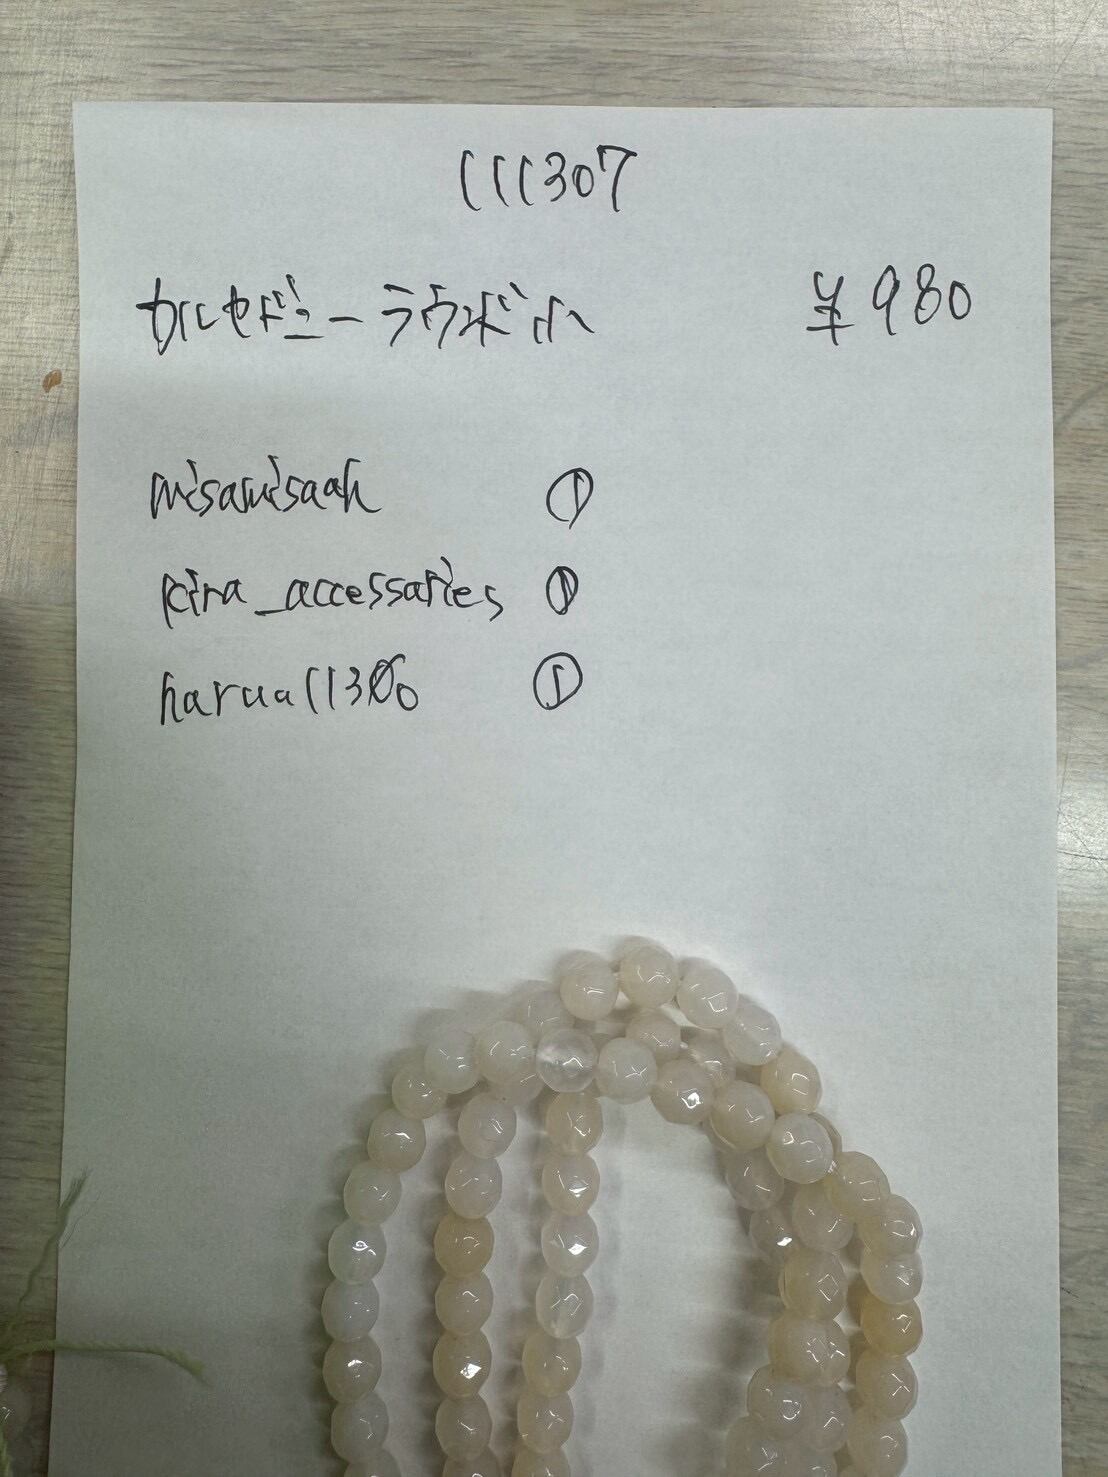 111307
カルセドニーラウンドカット ¥980
misamisaah ①
kira_accessaries ①
harua11300 ①